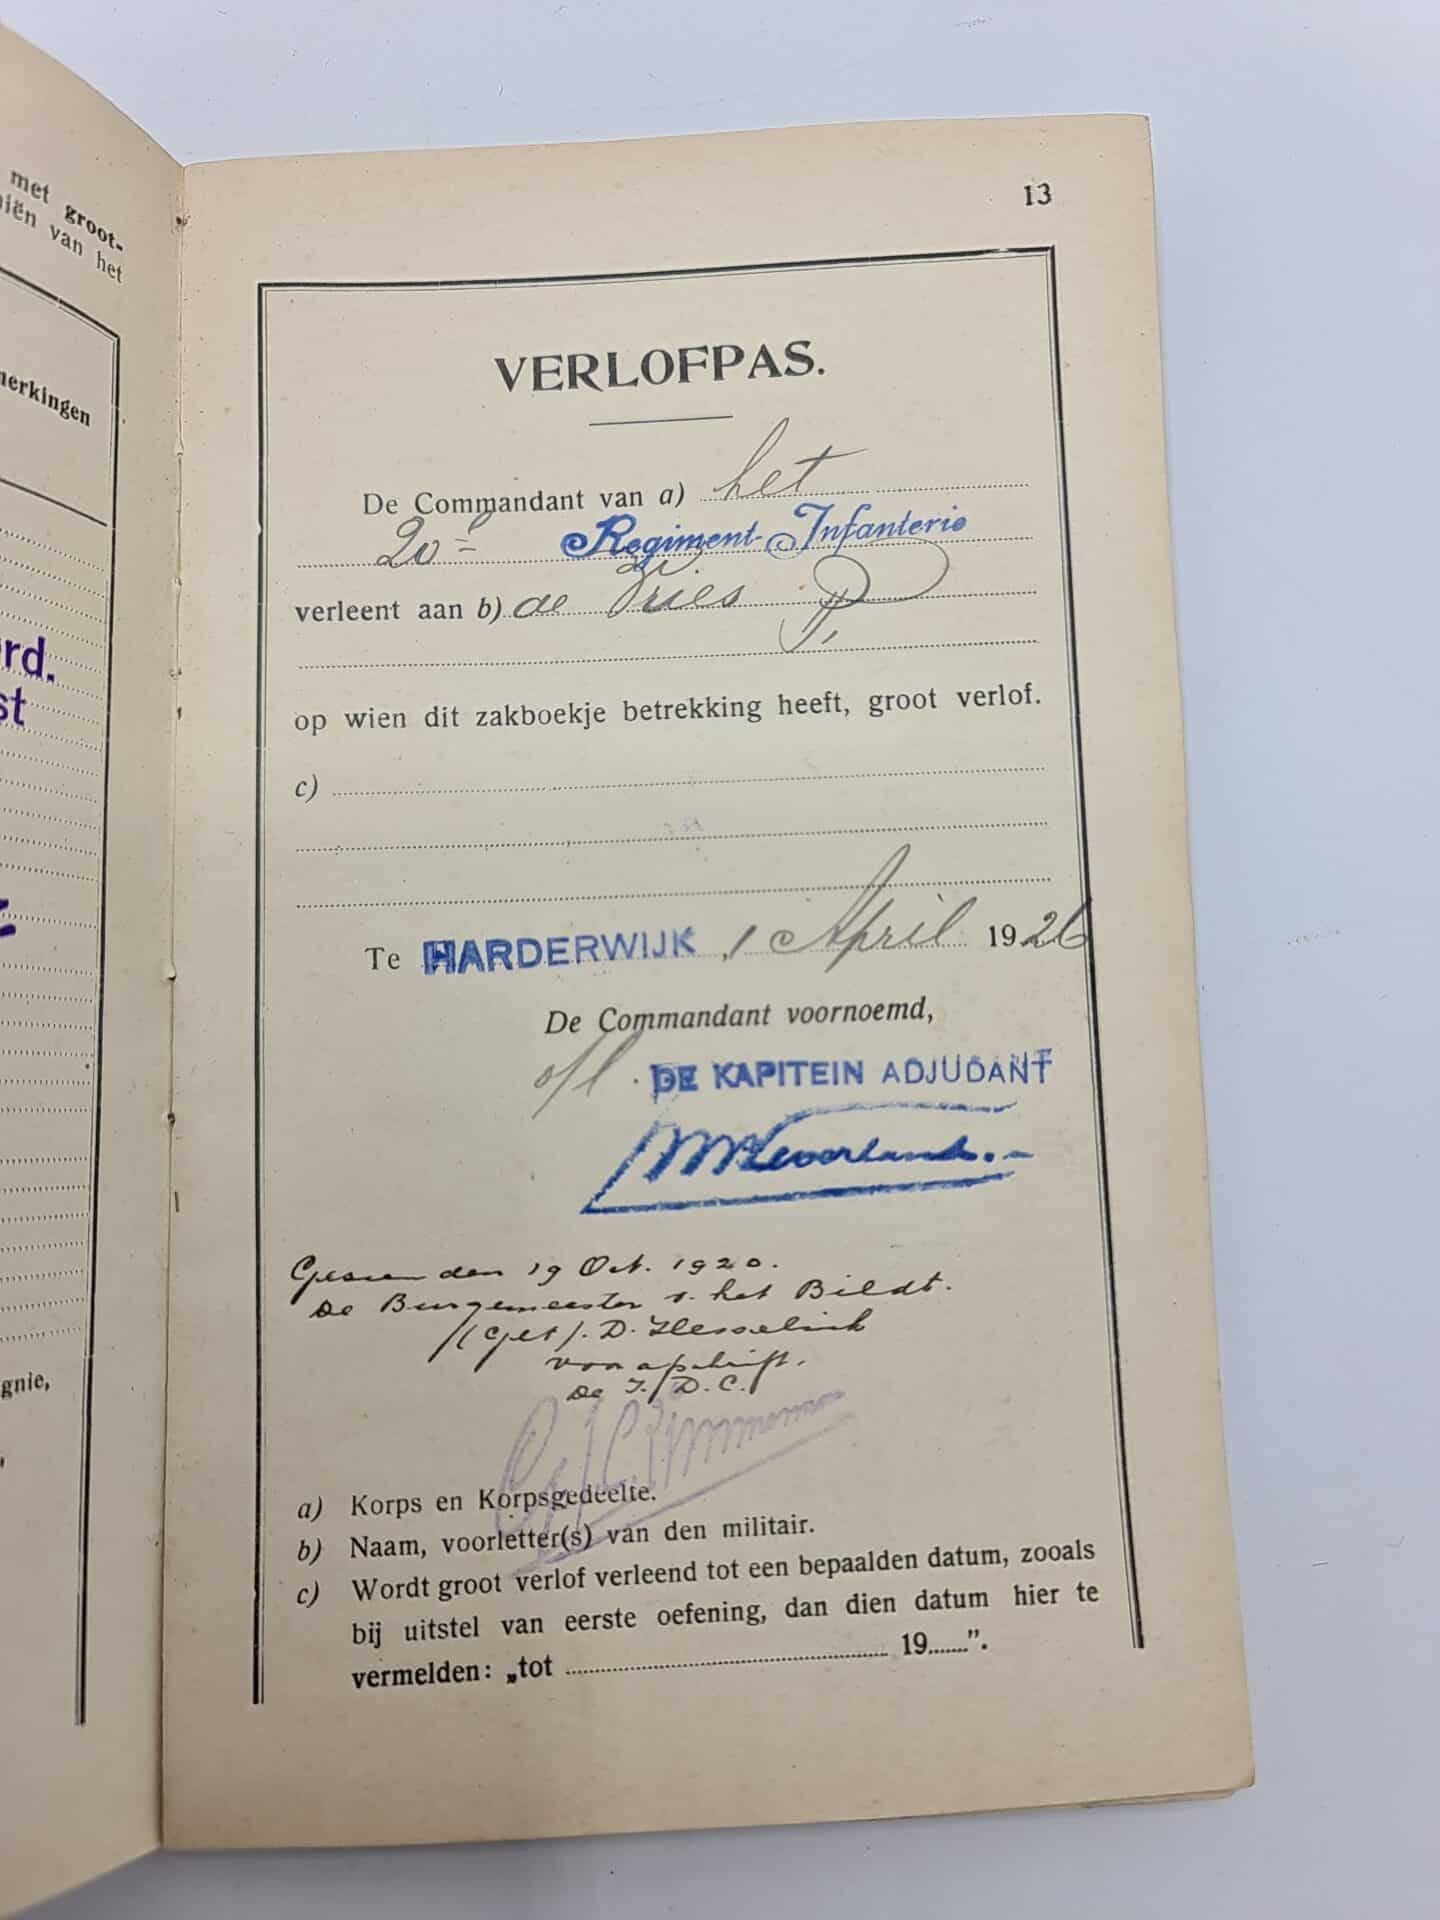 met groot-
iën van het
merkingen
rd.
st
gnie,
13
VERLOFPAS.
De Commandant van a) het
20e Regiment Infanterie
verleent aan b) de Vries P.
op wien dit zakboekje betrekking heeft, groot verlof.
c)
Te HARDERWIJK, 1 April 1926
De Commandant voornoemd,
o/l. DE KAPITEIN ADJUDANT
Gezien den 19 Oct. 1920.
De Burgemeester v. het Bildt.
/(get). D. Hesselink
voor afschrift.
De I/D.C.
a) Korps en Korpsgedeelte.
b) Naam, voorletter(s) van den militair.
c) Wordt groot verlof verleend tot een bepaalden datum, zooals
bij uitstel van eerste oefening, dan dien datum hier te
vermelden: „tot ........ 19.......”.